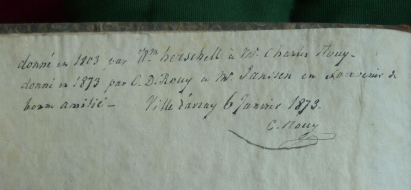 donné en 1803 par Wm herschell à Mr Charles Rouy
donné en 1873 par C. D. Rouy a Mr Janssen en souvenir de
bonne amitié – Ville d'avray 6 Janvier 1873.
C. Rouy